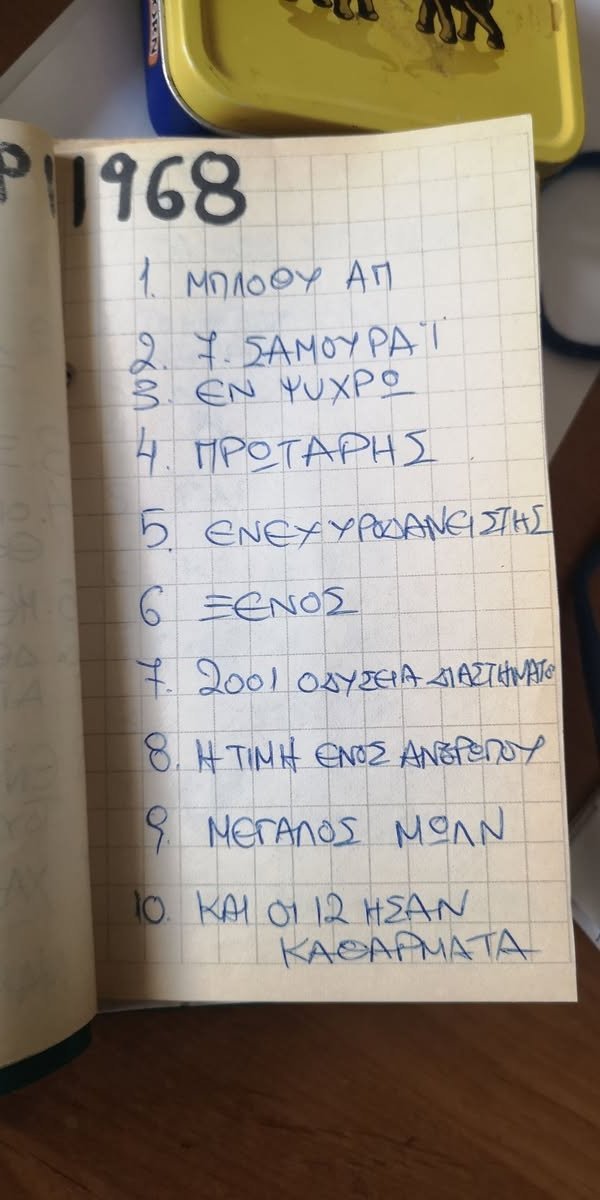 1968
1. ΜΠΛΟΟΥ ΑΠ
2. 7. ΣΑΜΟΥΡΑΪ
3. ΕΝ ΨΥΧΡΩ
4. ΠΡΩΤΑΡΗΣ
5. ΕΝΕΧΥΡΟΔΑΝΕΙΣΤΗΣ
6 ΞΕΝΟΣ
7. 2001 ΟΔΥΣΕΙΑ ΔΙΑΣΤΗΜΑΤΟ
8. Η ΤΙΜΗ ΕΝΟΣ ΑΝΘΡΩΠΟΥ
9. ΜΕΓΑΛΟΣ ΜΩΛΝ
10. ΚΑΙ ΟΙ 12 ΗΣΑΝ
ΚΑΘΑΡΜΑΤΑ